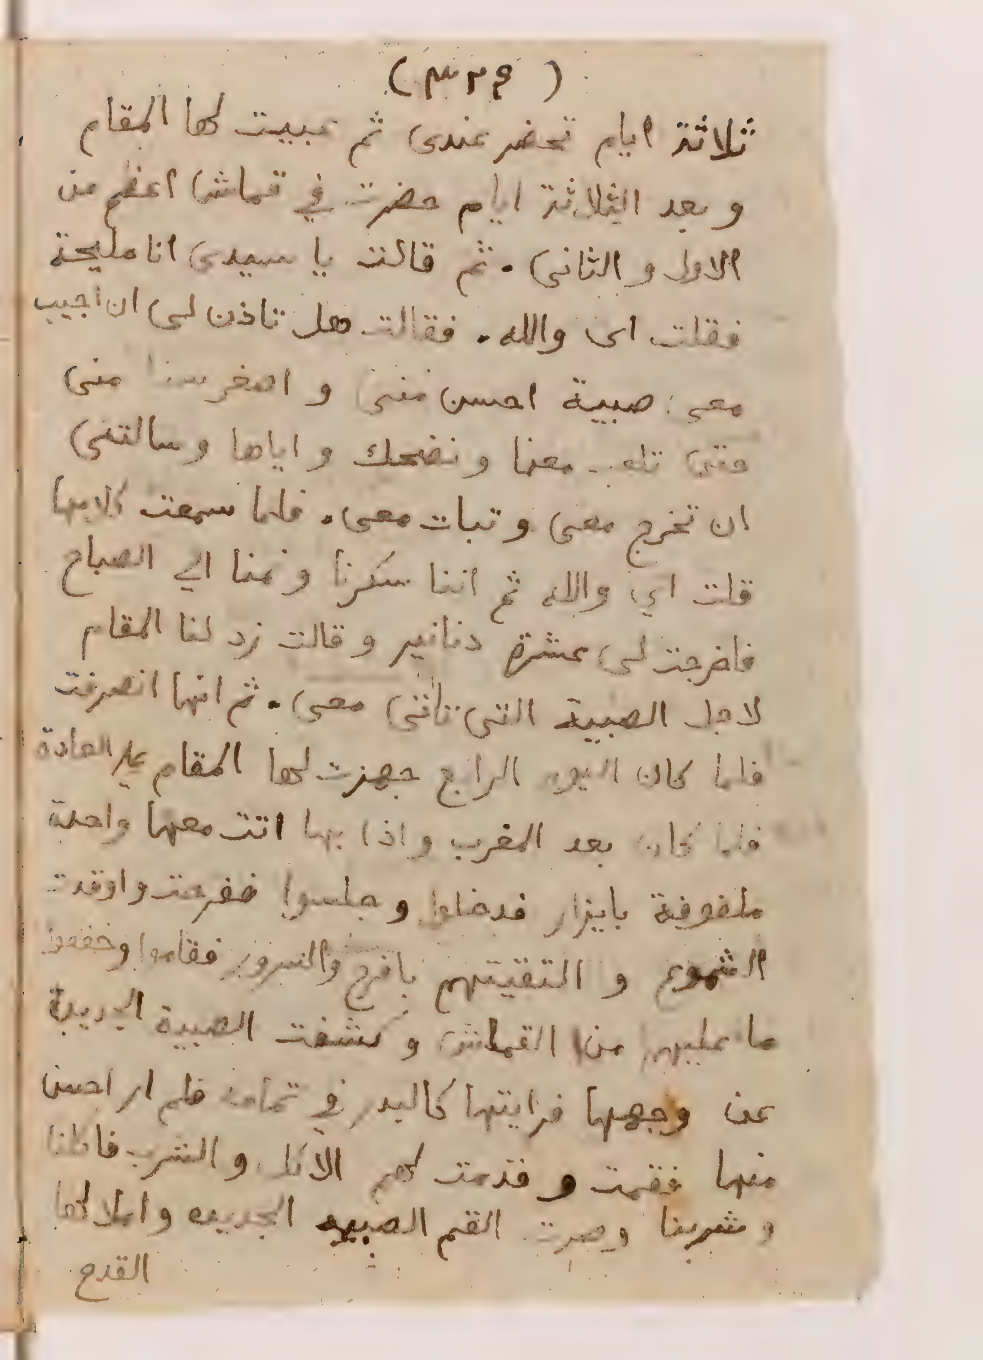 (٣٢٩)
ثلاثة ايام تحضر عندى ثم عبيت لها المقام
وبعد الثلاثة ايام حضرت في قماش اعظم من
الاول والثانى . ثم قالت يا سيدى انا مليحة
فقلت اى والله . فقالت هل تاذن لى ان اجيب
معى صبية احسن منى و اصغر سنا منى
حتى تلعب معنا ونضحك واياها وسالتنى
ان تخرج معى وتبات معى . فلما سمعت كلامها
قلت اي والله ثم اننا سكرنا ونمنا الي الصباح
فاخرجت لى عشرة دنانير وقالت زد لنا المقام
لاجل الصبية التى تاتى معى . ثم انها انصرفت
فلما كان اليوم الرابع جهزت لها المقام على العادة
فلما كان بعد المغرب واذا بها اتت معها واحدة
ملفوفة بايزار فدخلوا وجلسوا ففرحت واوقدت
الشموع و التقيتهم بافرح والسرور فقاموا وخففوا
ما عليهم من القماش وكشفت الصبية الجديدة
عن وجهها فرايتها كالبدر في تمامه فلم ار احسن
منها فقمت و قدمت لهم الاكل والشرب فاكلنا
وشربنا وصرت القم الصبيه الجديده واملا لها
القدح